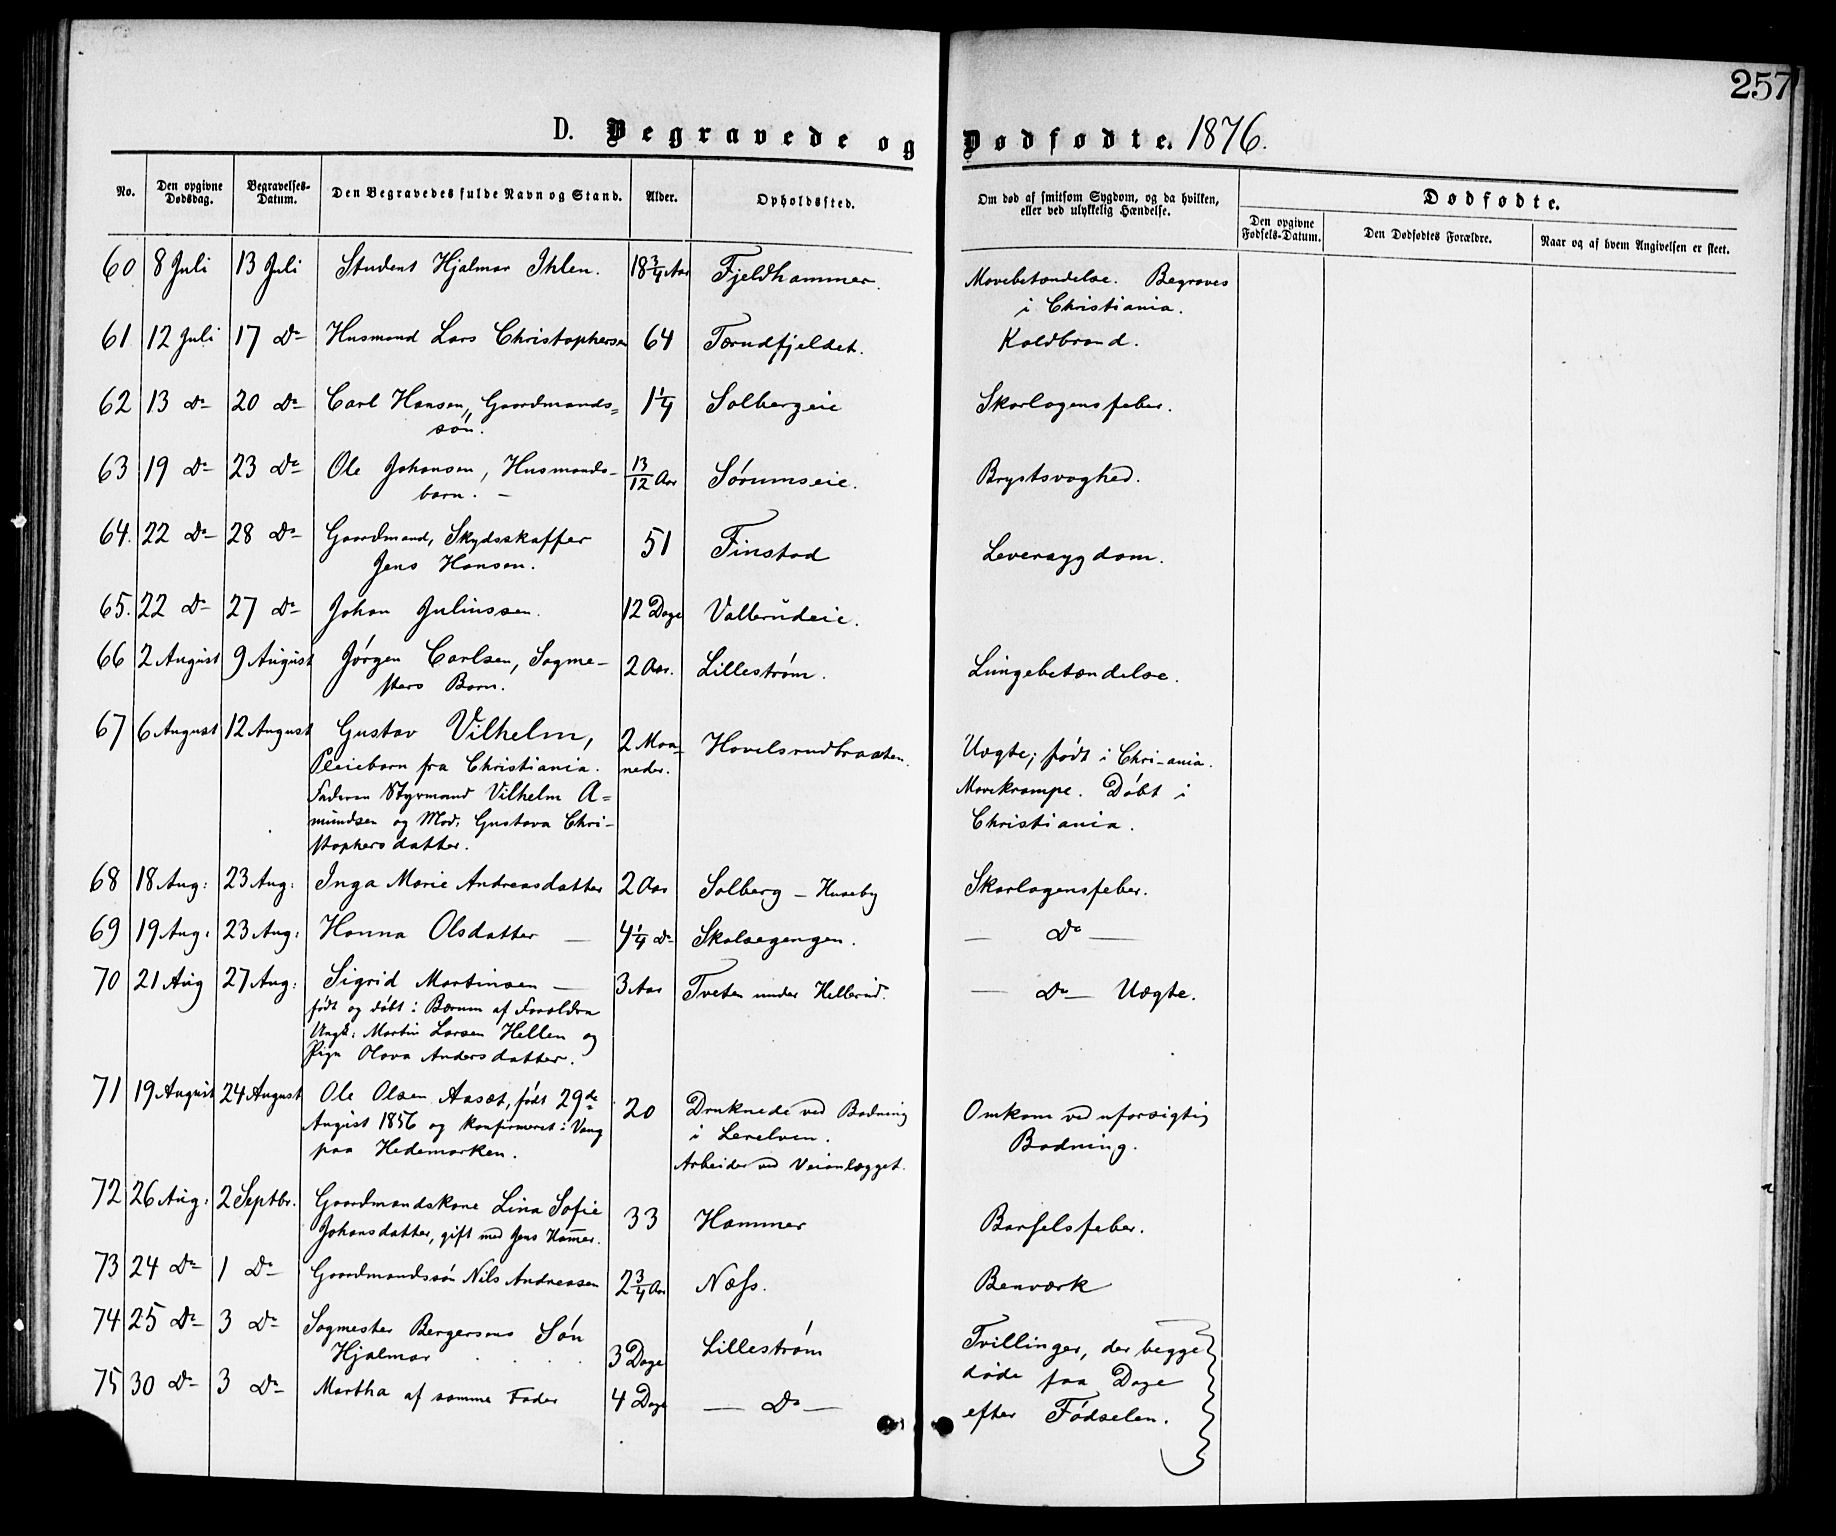 257
D. Begravede og Dødfødte. 1876.
No. Den opgivne Dødsdag. Begravelses-Datum. Den Begravedes fulde Navn og Stand. Alder. Opholdssted. Om død af smitsom Sygdom, og da hvilken, eller ved ulykkelig Hændelse. Dødfødte.
Den opgivne Fødsels-Datum. Den Dødfødtes Forældre. Naar og af hvem Angivelsen er skeet.
60. 8 Juli 13 Juli Student Hjalmar Ihlen. 18 3/4 Aar Fjeldhammer. Mavebetændelse. Begraves
i Christiania.
61 12 Juli 17 Do Husmand Lars Christophersen 64 Tærudfjeldet. Koldbrand.
62 13 Do 20 Do Carl Hansen, Gaardmands= 1 1/4 Solbergeie Skarlagensfeber.
søn.
63 19 Do 23 Do Ole Johansen, Husmands- 13/12 Aar Sørumseie. Brystsvaghed.
barn. —
64. 22 Do 28 Do Gaardmand, Skydsskaffer 51 Finstad Leversygdom.
Jens Hansen.
65. 22 Do 27 Do Johan Juliussen. 12 Dage Vallerudeie.
66 2 August 9 August Jørgen Carlsen, Sagme- 2 Aar. Lillestrøm. Lungebetændelse.
sters Barn.
67 6 August 12 August Gustav Vilhelm, 2 Maa- Hovelsrudbraaten. Uægte; født i Chri-ania.
Pleiebarn fra Christiania. neder.
Faderen Styrmand Vilhelm A= Mavekrampe. Døbt i
mundsen og Mod: Gustava Chri- Christiania.
stophersdatter.
68 18 Aug: 23 Aug: Inga Marie Andreasdatter 2 Aar Solberg — Huseby Skarlagensfeber.
69 19 Aug: 23 Aug: Hanna Olsdatter — 4 1/4 Do Skalsegengen. — Do —
70 21 Aug 27 Aug: Sigrid Martinsen — 3 Aar Tveten under Hellerud. — Do — Uægte.
født og døbt i Bærum af Forældre
Ungk: Martin Larsen Hellen og
Pige Olava Andersdatter.
71 19 August 24 August Ole Olsen Aaset, født 29de 20 Druknede ved Badning Omkom ved uforsigtig
August 1856 og konfirmeret i Vang i Leerelven. Badning.
paa Hedemarken. Arbeider ved Veianlægget.
72 26 Aug: 2 Septbr. Gaardmandskone Lina Sofie 33 Hammer Barselsfeber.
Johansdatter, gift med Jens Ham̄er.
73 24 Do 1 Do Gaardmandssøn Nils Andreasen 2 3/4 Aar Næss. Benværk
74 25 Do 3 Do Sagmester Bergersens Søn Lillestrøm Tvillinger, der begge
Hjalmar . . . . 3 Dage døde faa Dage
75 30 Do 3 Do Martha af samme Fader 4 Dage — Do — efter Fødselen.